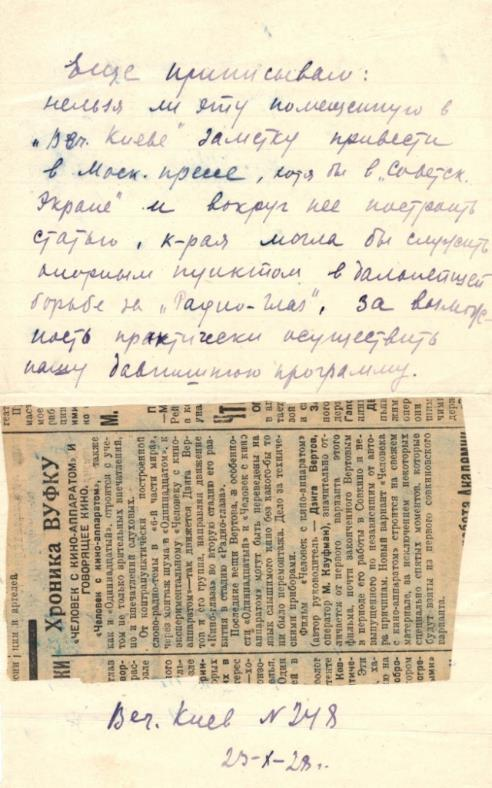 Еще приписываю:
нельзя ли эту помещенную в
„Веч. Киеве" заметку привести
в Моск. прессе, хотя бы в „Советск.
Экране" и вокруг нее построить
статью, к-рая могла бы служить
опорным пунктом в дальнейшей
борьбе за „Радио-Глаз", за возмож-
ность практически осуществить
нашу давнишнюю программу.
Хроника ВУФКУ
«ЧЕЛОВЕК С КИНО-АППАРАТОМ» И
ГОВОРЯЩЕЕ КИНО.
«Человек с кино-аппаратом», также
как и «Одиннадцатый», строится с уче-
том не только зрительных впечатлений,
но и впечатлений слуховых.
От контрапунктически построенной
слово-радио-темы в «6-й части мира»,
через монтаж шума в «Одиннадцатом», к
экспериментальному «Человеку с кино-
аппаратом»—так движется Дзига Вер-
тов и его группа, направляя движение
«Кино-глаза» во вторую стадию его раз-
вития, в стадию «Радио-глаза».
Последние вещи Вертова, в особенно-
сти «Одиннадцатый» и «Человек с кино
аппаратом» могут быть переведены на
язык слышимого кино без какого-бы то
ни было перемонтажа. Дело за техниче-
скими приборами.
Фильм «Человек с кино-аппаратом»
(автор руководитель — Дзига Вертов,
оператор М. Кауфман), значительно от-
личается от первого варианта этого
фильма, почти законченного Вертовым
в периоде его работы в Совкино и не-
выпущенного по независящим от авто-
ра причинам. Новый вариант «Человека
с кино-аппаратом» строится на свежем
материале, за исключением некоторых
специально снятых моментов, которые
будут взяты из первого совкиновского
варианта.
Веч. Киев N 248
25-X-28г.